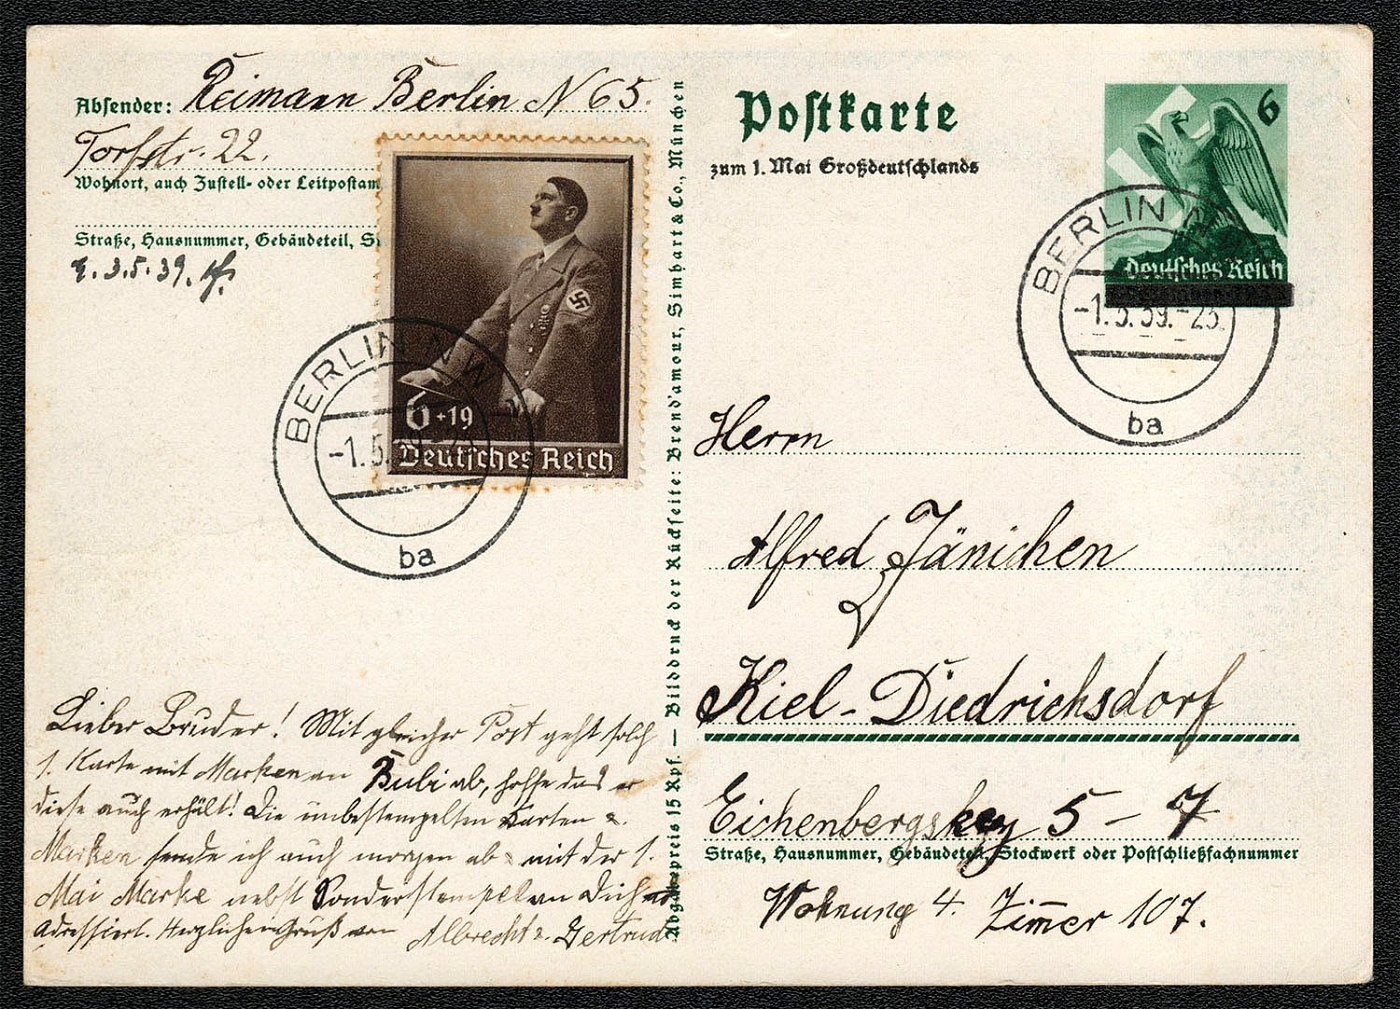 Absender: Reimann Berlin N 65.
Torfstr. 22.
Wohnort, auch Zustell- oder Leitpostam
Straße, Hausnummer, Gebäudeteil, S
3.5.39.
6+19
Deutsches Reich
BERLIN NW
-1.5.
ba
Lieber Bruder! Mit gleicher Post geht solch
1. Karte mit Marken an Bubi ab, hoffe das er
diese auch erhält! Die unbestempelten Karten u.
Marken sende ich auch morgen ab mit der 1.
Mai Marke nebst Sonderstempel an Dich
adressiert. Herzlichen Gruß von Albrecht u. Gertrud
Abgabepreis 15 Rpf. — Bilddruck der Rückseite: Brend'amour, Simhart & Co., München
Postkarte
zum 1. Mai Großdeutschlands
6
Deutsches Reich
BERLIN
-1.5.39.-23.
ba
Herrn
Alfred Jänichen
Kiel-Diedrichsdorf
5 - 7
Straße, Hausnummer, Gebäudeteil, Stockwerk oder Postschließfachnummer
Wohnung 4. Zimmer 107.